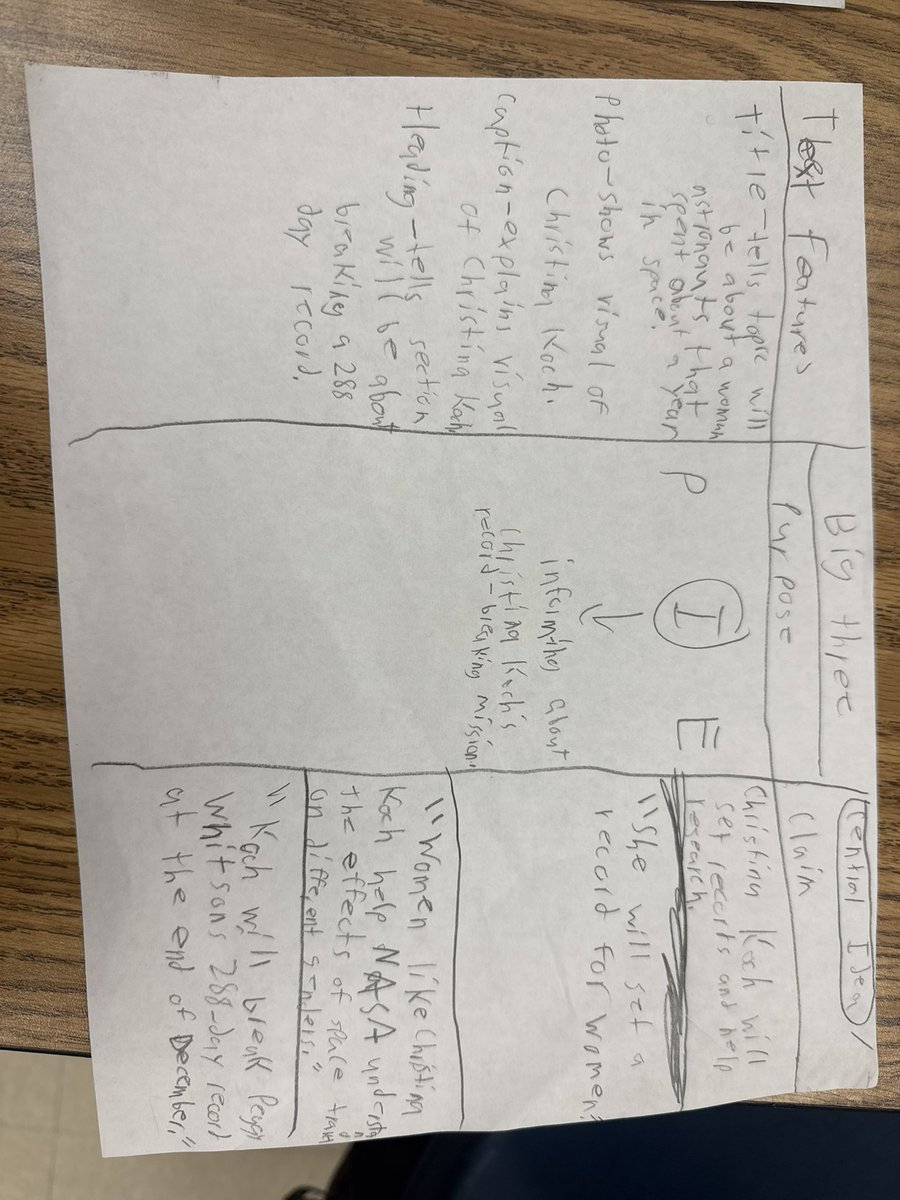 Big three
Text features
title-tells topic will
be about a woman
astronauts that
spent about a year
in space.
Photo-shows visual of
Christina Koch.
caption-explains visual
of Christina Koch
Heading-tells section
will be about
breaking a 288
day record.
Purpose
P I E
↓
informing about
Christina Koch's
record-breaking mission.
Central Idea/
Claim
Christina Koch will
set records and help
research.
"She will set a
record for women"
"Women like Christina
Koch help NASA understand
the effects of space travel
on different genders."
"Koch will break Peggy
Whitsons 288-day record
at the end of December."